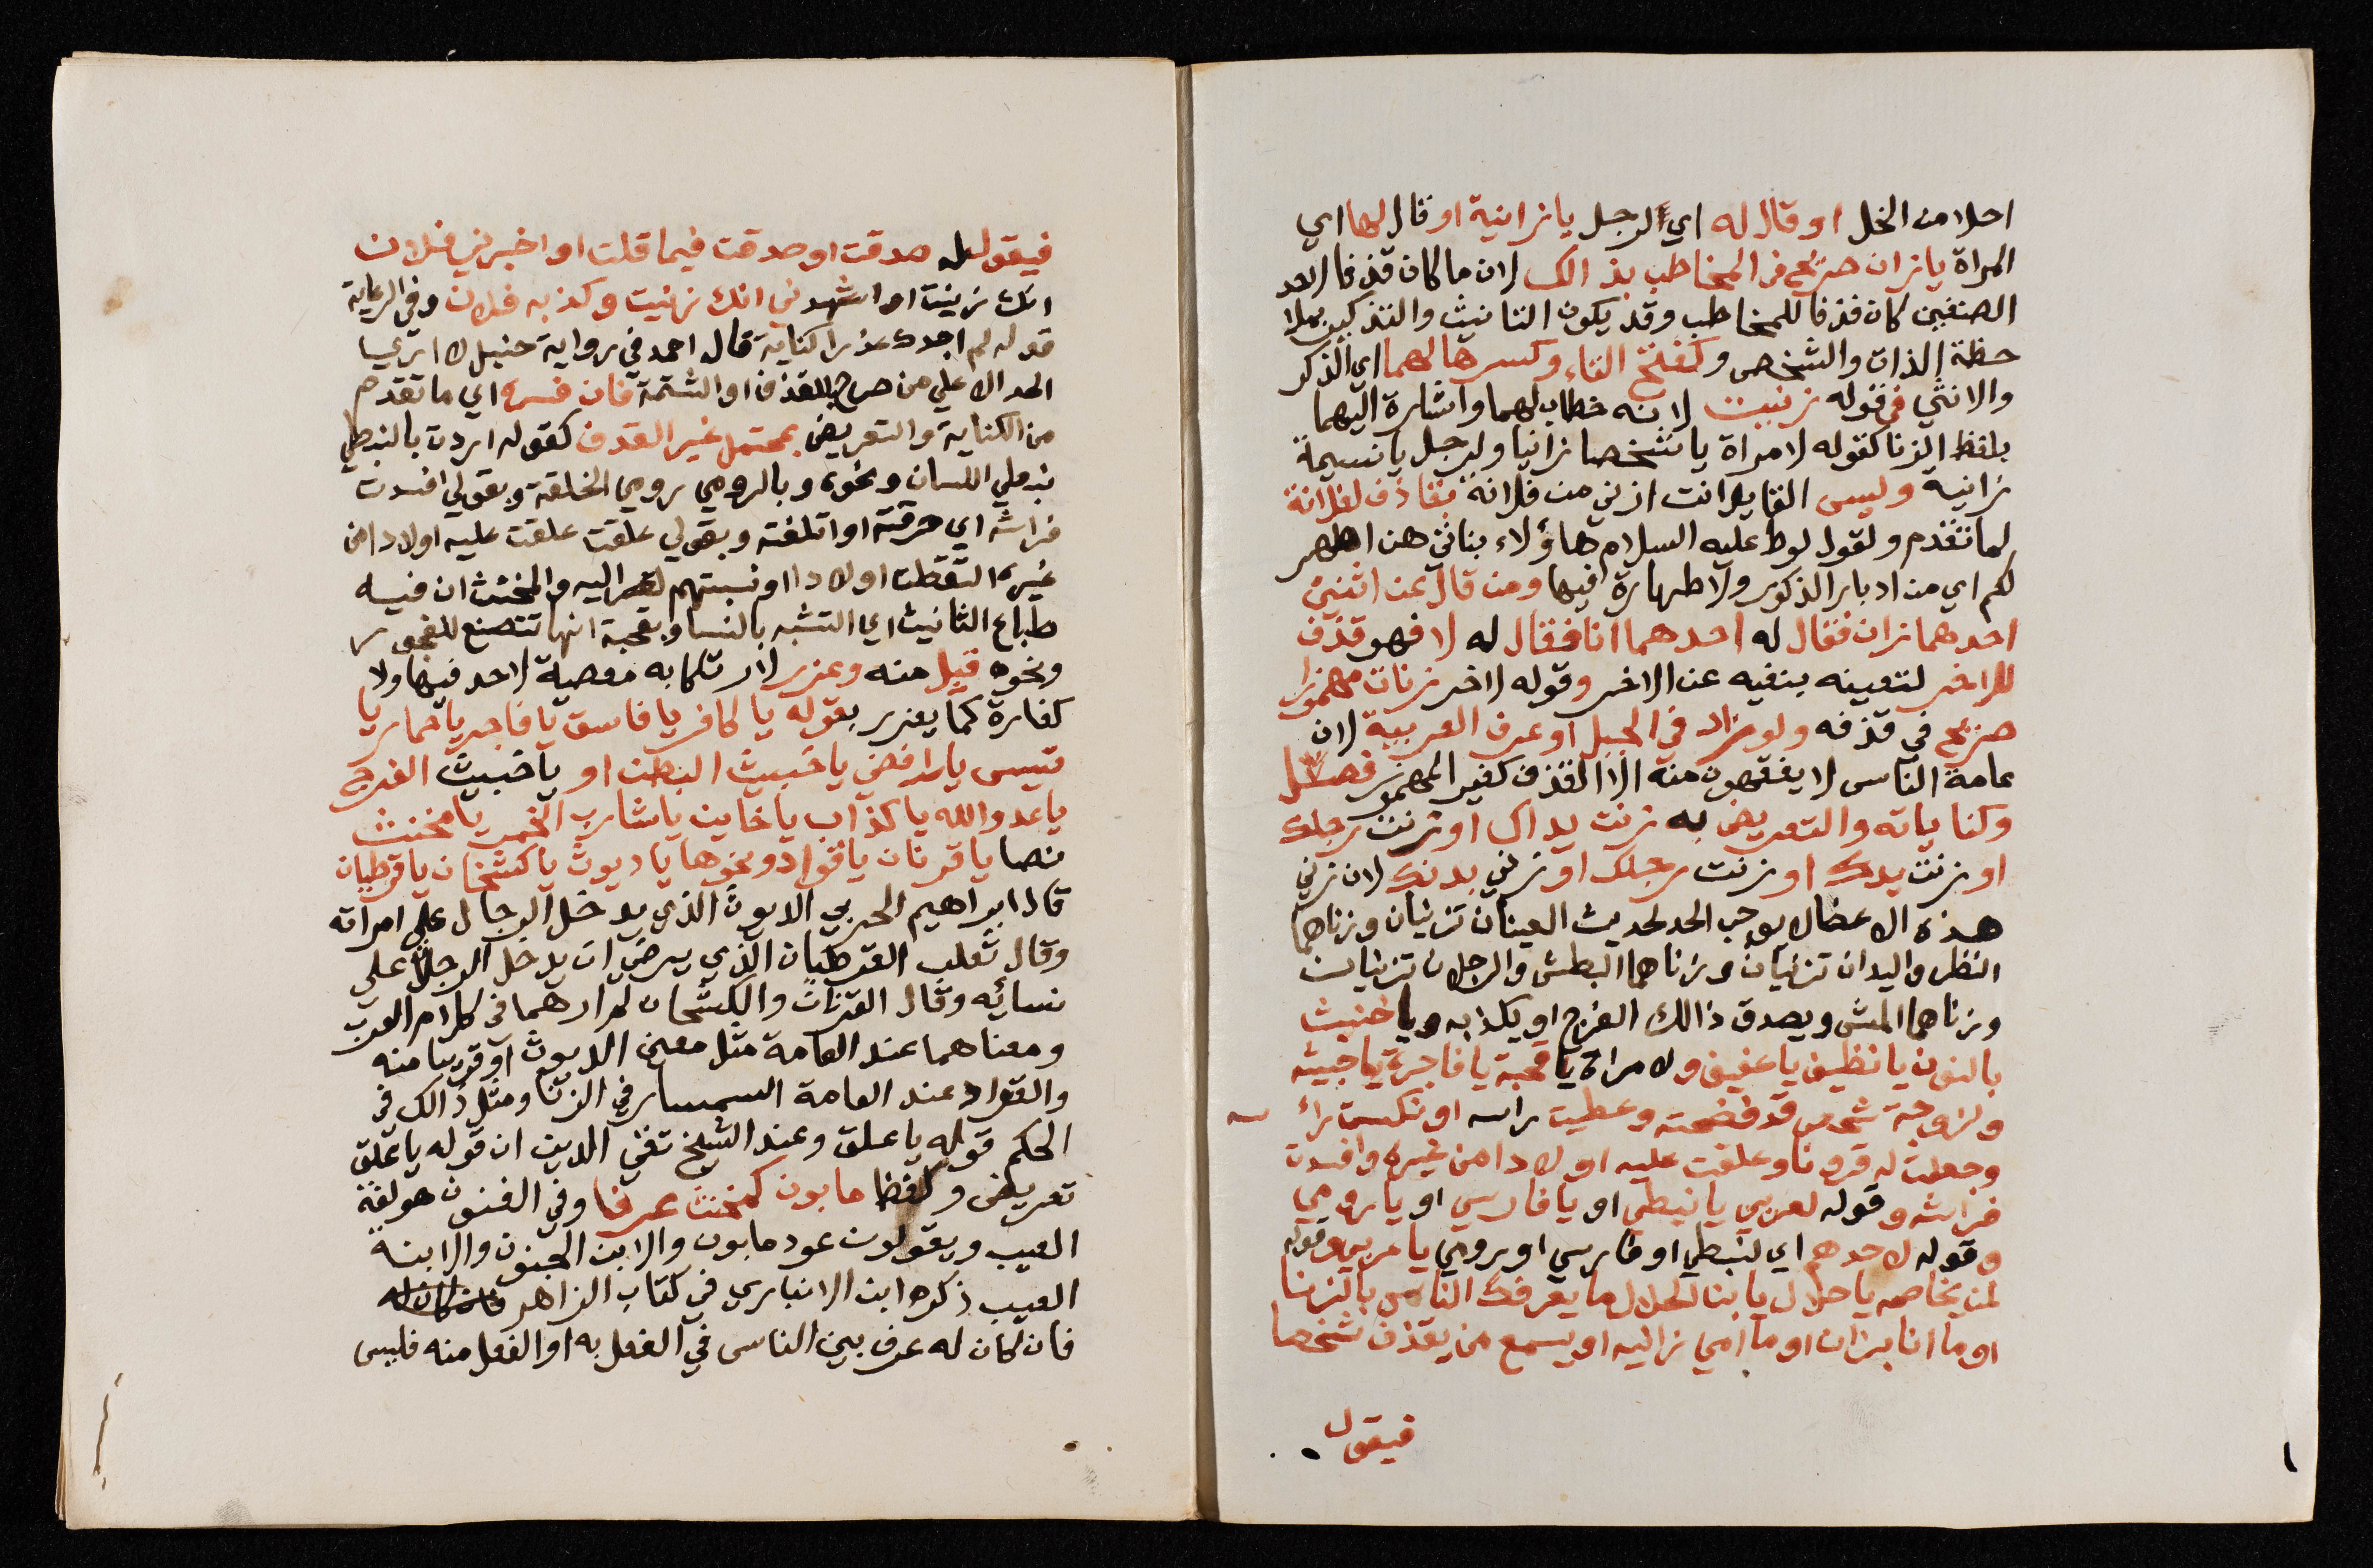 احلا من الخل او قال له اي الرجل يا زانية او قال لها اي
المراة يا زان صريح في المخاطب بذالك لان ما كان قذفا لاحد
الصنفين كان قذفا للمخاطب وقد يكون التانيث والتذكير بملا
حظة الذات والشخص وكفتح التاء وكسرها لهما اي الذكر
والانثي في قوله زنيت لانه خطاب لهما واشارة اليهما
بلفظ الزنا كقوله لامراة يا شخصا زانيا ولرجل يا نسيمة
زانية وليس القايل انت ازني من فلانة بقاذف لفلانة
لما تقدم ولقول لوط عليه السلام هاؤلاء بناتي هن اطهر
لكم اي من ادبار الذكور ولا طهارة فيها ومن قال عن اثنين
احدهما زان فقال له احدهما انا فقال له لا فهو قذف
للاخر لتعيينه بنفيه عن الاخر وقوله لاخر زنات مهموزا
صريح في قذفه ولو زاد في الجبل او عرف العربية لان
عامة الناس لا يفقهون منه الا القذف كغير المهموز فصل
وكناياته والتعريض به زنت يداك او زنت رجلاك
او زنت يدك او زنت رجلك او زني بدنك لان زني
هذه الاعضا لا يوجب الحد لحديث العينان تزنيان وزناهما
النظر واليدان تزنيان وزناهما البطش والرجلان تزنيان
وزناهما المشي ويصدق ذالك الفرج او يكذبه ويا خنيث
بالنون يا نظيف يا عفيف ولامراة يا قحبة يا فاجرة يا خبيثه
ولزوجة شخص قد فضحته وغطيت راسه او نكست راسه
وجعلت له قرونا وعلقت عليه اولادا من غيره وافسدت
فراشه وقوله لعربي يا نبطي او يا فارسي او يا رومي
وقوله لاحدهم اي لنبطي او فارسي او رومي يا عربي وقوله
لمن يخاصمه يا حلال يا بن الحلال ما يعرفك الناس بالزنا
او ما انا بزان او ما امي زانيه او يسمع من يقذف شخصا
فيقول
فيقول له صدقت او صدقت فيما قلت او اخبرني فلان
انك زنيت او اشهدني انك زنيت وكذبه فلان وفي الرعاية
قوله لم اجدك عذرا كناية قال احمد في رواية حنبل لا اري
الحد الا علي من صرح بالقذف او الشتمة فان فسره اي ما تقدم
من الكناية والتعريض بمحتمل غير القذف كقوله اردت بالنبطي
نبطي اللسان ونحوه وبالرومي رومي الخلقة وبقولي افسدت
فراشه اي حرقته او اتلفته وبقولي علقت عليه اولادا من
غيره التقطت اولادا او نسبتهم اليه والمخنث ان فيه
طباع التانيث اي التشبه بالنسا وبقحبة انها تتصنع للفجور
ونحوه قبل منه وعزر لارتكابه معصية لا حد فيها ولا
كفارة كما يعزر بقوله يا كافر يا فاسق يا فاجر يا حمار يا
تيس يا رافضي يا خبيث البطن او يا خبيث الفرج
يا عدو الله يا كذاب يا خاين يا شارب الخمر يا مخنث
نصا يا قرنان يا قواد ونحوها يا ديوث يا كشخان يا قرطبان
قال ابراهيم الحربي الديوث الذي يدخل الرجال علي امراته
وقال ثعلب القرطبان الذي يرضي ان يدخل الرجال علي
نسائه وقال القرنان والكشخان لم ارهما في كلام العرب
ومعناهما عند العامة مثل معني الديوث او قريبا منه
والقواد عند العامة السمسار في الزنا ومثل ذالك في
الحكم قوله يا علق وعند الشيخ تقي الدين ان قوله يا علق
تعريض ولفظ مابون كمخنث عرفا وفي الفنون هو لغة
العيب ويقولون عود مابون والابن الجنون والابنة
العيب ذكره ابن الانباري في كتاب الزاهر
فان كان له عرف بين الناس في الفعل به او الفعل منه فليس